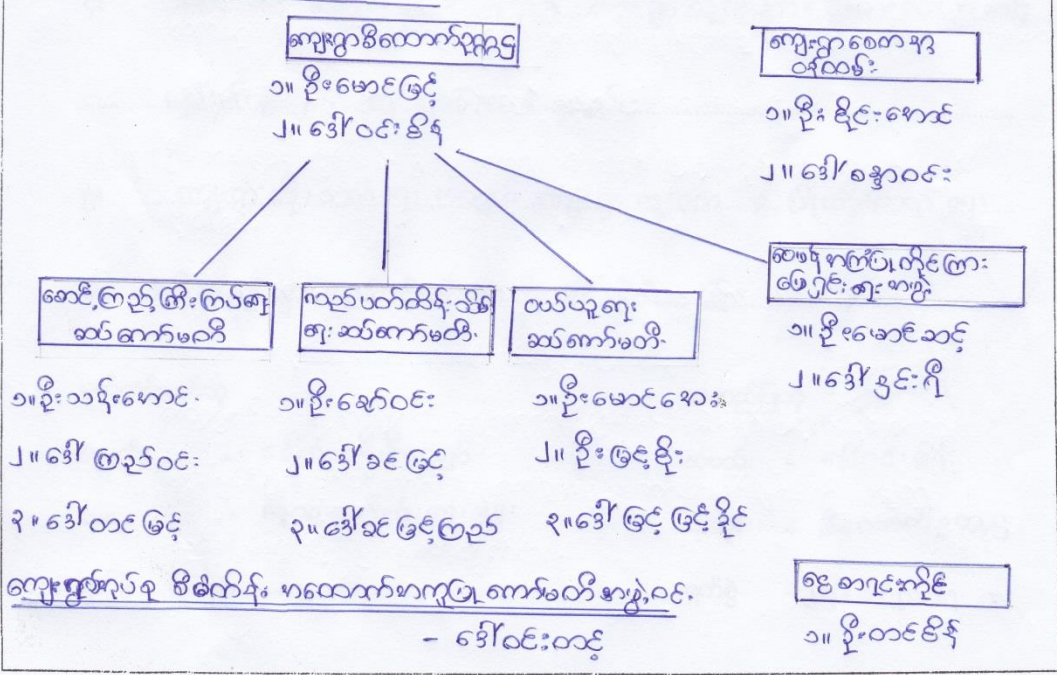 ကျေးရွာစီထောက်ဥက္ကဋ္ဌ
၁။ ဦးမောင်မြင့်
၂။ ဒေါ်ဝင်းစိန်
ကျေးရွာစေတနာ့
ဝန်ထမ်း
၁။ ဦးစိုင်းအောင်
၂။ ဒေါ်စန္ဒာဝင်း
စောင့်ကြည့်ကြီးကြပ်ရေး
ဆပ်ကော်မတီ
၁။ ဦးသန်းအောင်
၂။ ဒေါ်ကြည်ဝင်း
၃။ ဒေါ်တင်မြင့်
လည်ပတ်ထိန်းသိမ်း
ရေးဆပ်ကော်မတီ
၁။ ဦးဇော်ဝင်း
၂။ ဒေါ်ခင်မြင့်
၃။ ဒေါ်ခင်မြင့်ကြည်
ဝယ်ယူရေး
ဆပ်ကော်မတီ
၁။ ဦးမောင်အေး
၂။ ဦးမြင့်စိုး
၃။ ဒေါ်မြင့်မြင့်ခိုင်
ဝေဖန်အကြံပြုတိုင်ကြား
ဖြေရှင်းရေးအဖွဲ့
၁။ ဦးမောင်ဆင့်
၂။ ဒေါ်ရှင်းရီ
ကျေးရွာအုပ်စု စီမံကိန်း အထောက်အကူပြု ကော်မတီအဖွဲ့ဝင်
- ဒေါ်ဝင်းတင့်
ငွေစာရင်းကိုင်
၁။ ဦးတင်စိန်